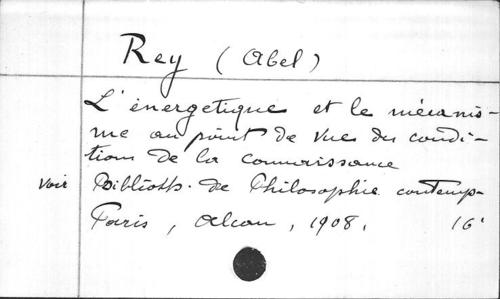 Rey (Abel)
L'énergetique et le mécanis-
me au point de vue des condi-
tions de la connaissance
Voir Biblioth. de Philosophie contemp.
Paris, Alcan, 1908. 16°